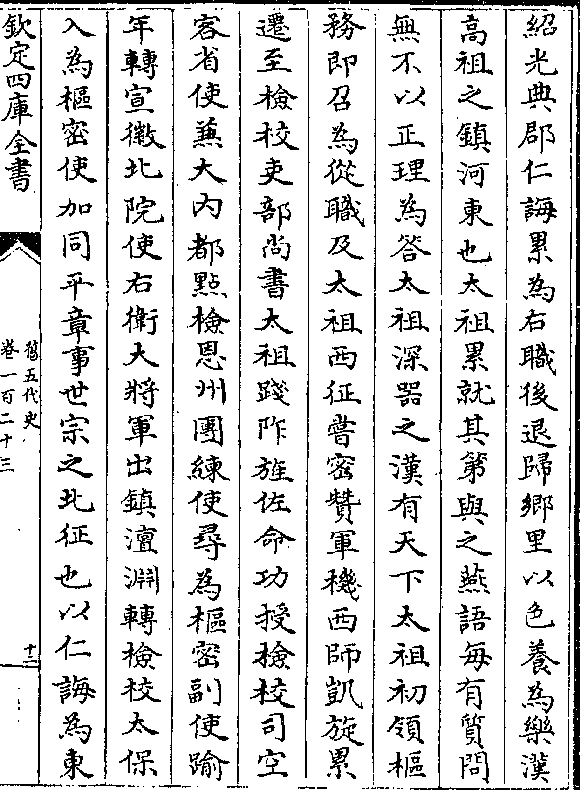 紹光典郡仁誨累為右職後退歸鄉里以色養為樂漢
高祖之鎮河東也太祖累就其第與之燕語每有質問
無不以正理為答太祖深器之漢有天下太祖初領樞
務即召為從職及太祖西征嘗密贊軍機西師凱旋累
遷至檢校吏部尚書太祖踐阼旌佐命功授檢校司空
客省使兼大内都點檢恩州團練使尋為樞密副使踰
年轉宣徽北院使右衛大將軍出鎮澶淵轉檢校太保
入為樞密使加同平章事世宗之北征也以仁誨為東
欽定四庫全書
舊五代史
卷一百二十三
十二